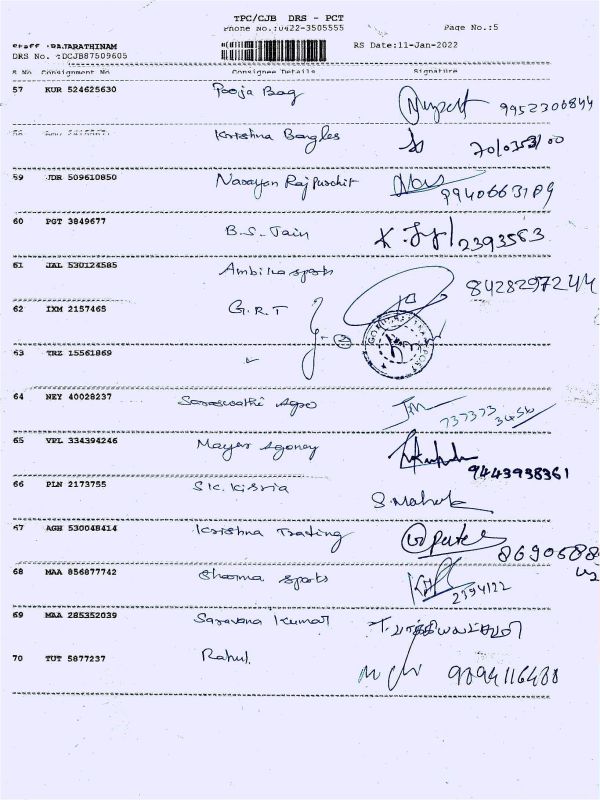 TPC/CJB DRS - PCT
Phone No.:0422-3505555 Page No.:5
Staff :RAJARATHINAM RS Date:11-Jan-2022
DRS No. :DCJB87509605
S No Consignment No Consignee Details Signature
57 KUR 524625630 Pooja Bag 9952306844
Krishna Bangles
59 JDR 509610850 Narayan Rajpurohit 9940663189
60 PGT 3849677 B.S. Jain 2393583
61 JAL 530124585 Ambika sports 8428297244
62 IXM 2157465 G.R.T
63 TRZ 15561869
64 NEY 40028237 Saraswathi Agro 737373 3456
65 VPL 334394246 Mayur Agency 9443938361
66 PLN 2173755 S.K. S. Mahek
67 AGH 530048414 Krishna Trading 8690688
68 MAA 856877742 Sharma sports 2394122
69 MAA 285352039 Saravana Kumar
70 TUT 5877237 Rahul. 9894116488